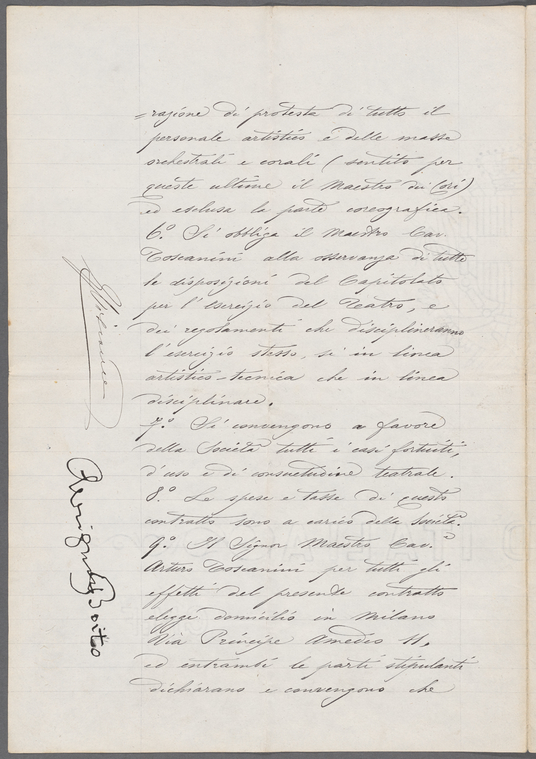 =razione di protesta di tutto il
personale artistico e delle masse
orchestrali e corali (sentito per
queste ultime il Maestro dei Cori)
ed esclusa la parte coreografica.
6.° Si obbliga il Maestro Cav.
Toscanini alla osservanza di tutte
le disposizioni del Capitolato
per l'esercizio del Teatro, e
dei regolamenti che disciplineranno
l'esercizio stesso, si in linea
artistico-tecnica che in linea
disciplinare.
7.° Si convengono a favore
della Società tutti i casi fortuiti,
d'uso e di consuetudine teatrale.
8.° Le spese e tasse di questo
contratto sono a carico della Società.
9.° Il Signor Maestro Cav.
Arturo Toscanini per tutti gli
effetti del presente contratto
elegge domicilio in Milano
Via Principe Amedeo 11,
ed entrambi le parti stipulanti
dichiarano e convengono che
Arrigo Boito